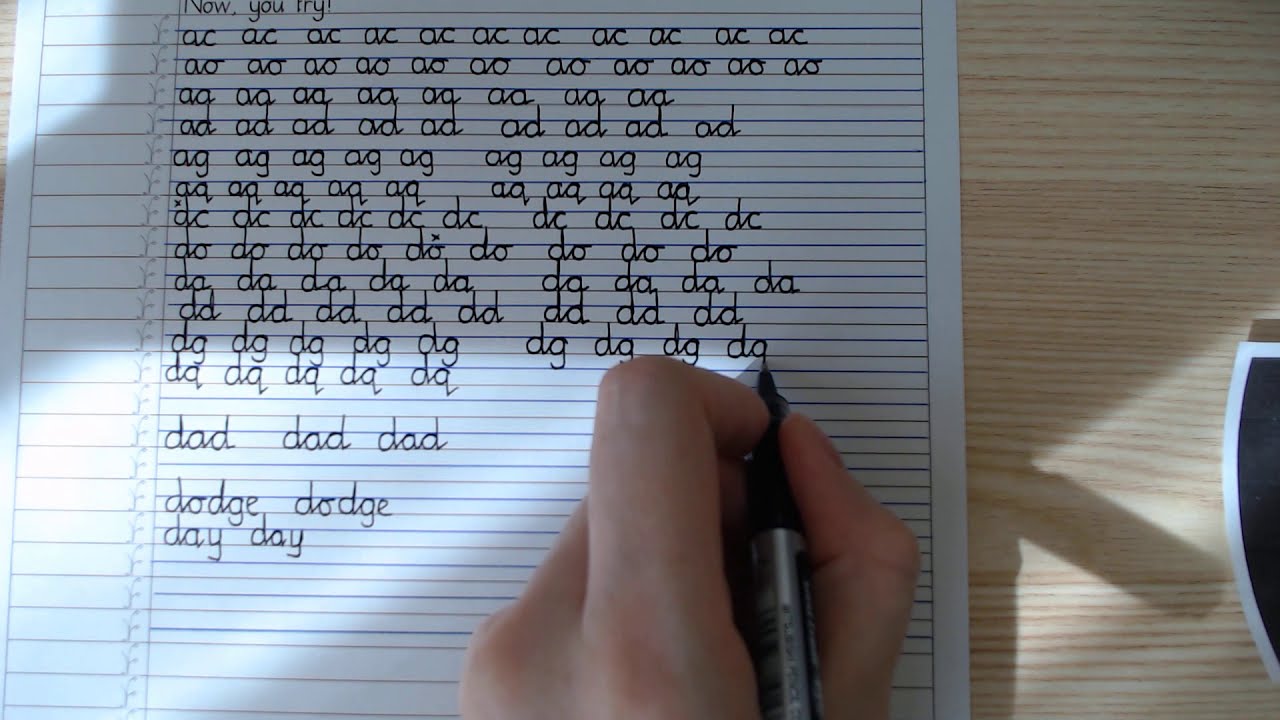 Now, you try!
ac ac ac ac ac ac ac ac ac ac ac
ao ao ao ao ao ao ao ao ao ao ao
aq aq aq aq aq aa aq aq
ad ad ad ad ad ad ad ad ad
ag ag ag ag ag ag ag ag ag
aq aq aq aq aq aq aq aq aq
dc dc dc dc dc dc dc dc dc dc
do do do do do do do do do
da da da da da da da da da
dd dd dd dd dd dd dd dd
dg dg dg dg dg dg dg dg dg
dq dq dq dq dq
dad dad dad
dodge dodge
day day